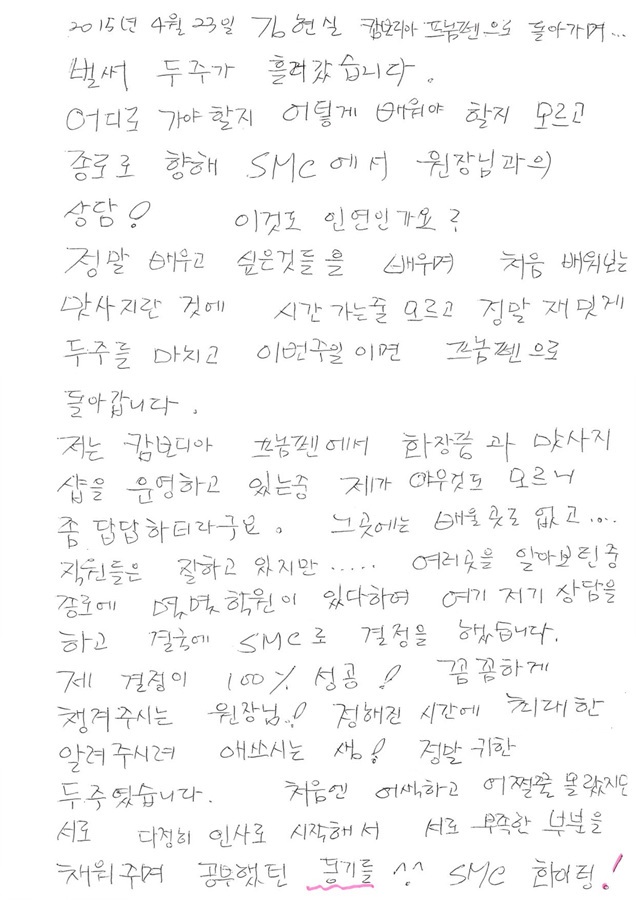 2015년 4월 23일 김현실 캄보디아 프놈펜으로 돌아가며...
벌써 두주가 흘러갔습니다.
어디로 가야할지 어떻게 배워야 할지 모르고
종로로 향해 SMC에서 원장님과의
상담! 이것도 인연인가요?
정말 배우고 싶은것들을 배우며 처음 배워보는
맛사지란 것에 시간 가는줄 모르고 정말 재밋게
두주를 마치고 이번주일이면 프놈펜으로
돌아갑니다.
저는 캄보디아 프놈펜에서 화장품과 맛사지
샵을 운영하고 있는중 제가 아무것도 모르니
좀 답답하더라구요. 그곳에는 배울곳도 없고....
직원들은 잘하고 있지만..... 여러곳을 알아보던중
종로에 몇몇학원이 있다하여 여기 저기 상담을
하고 결국에 SMC로 결정을 했습니다.
제 결정이 100% 성공! 꼼꼼하게
챙겨주시는 원장님! 정해진 시간에 최대한
알려주시려 애쓰시는 샘! 정말 귀한
두주였습니다. 처음엔 어색하고 어쩔줄 몰랐지만
서로 다정히 인사로 시작해서 서로 부족한 부분을
채워주며 공부했던 동기들 ^^ SMC 화이팅!